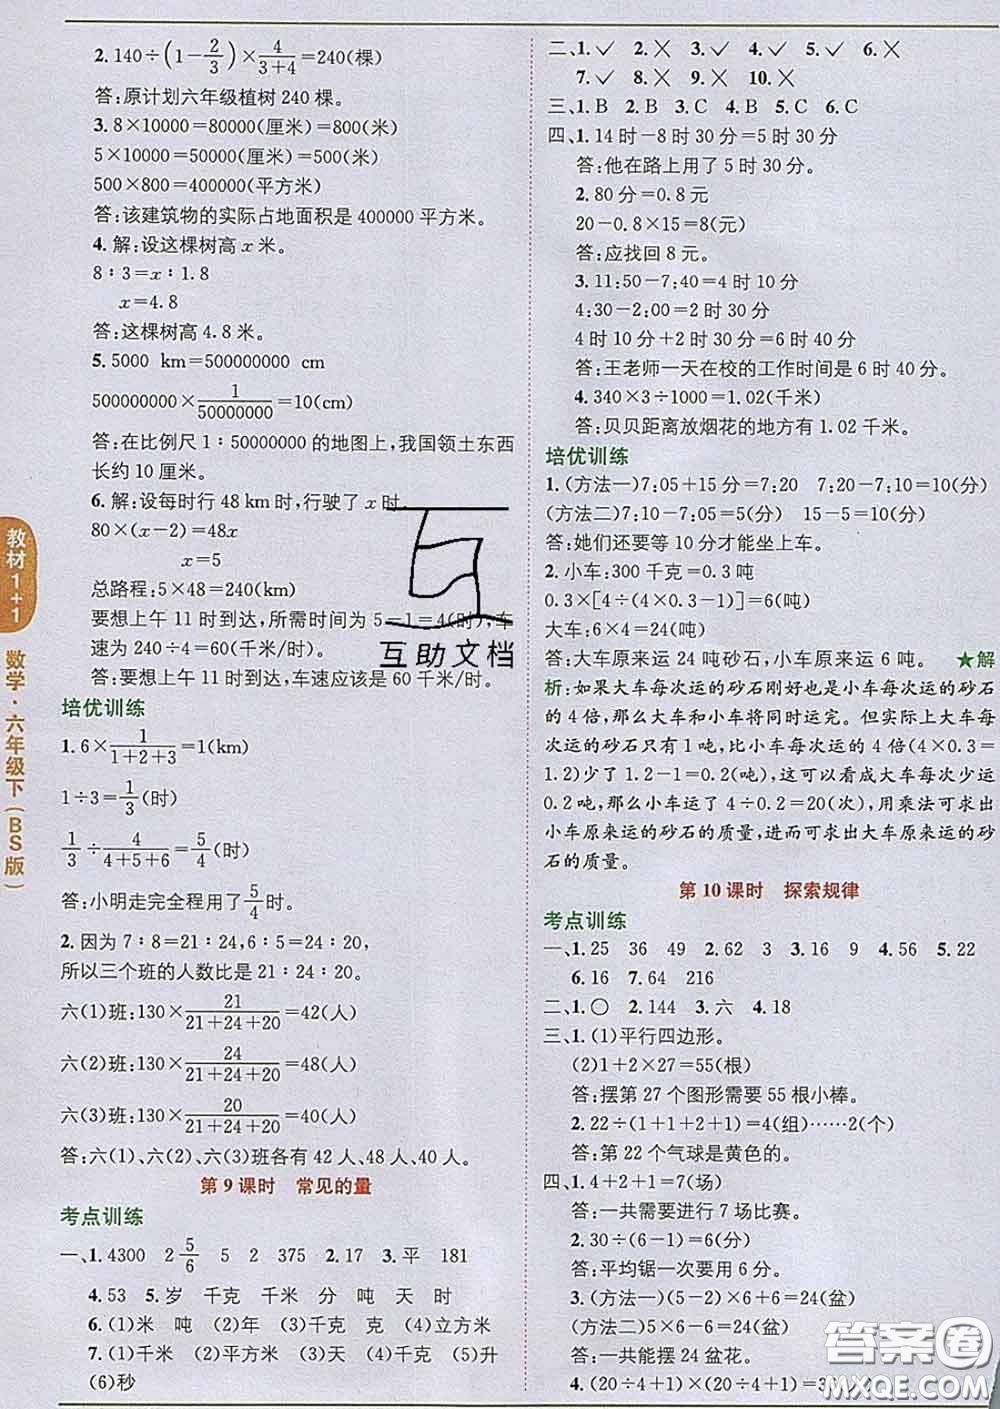 2. 140÷(1－2/3)×4/(3+4)=240(棵)
答:原计划六年级植树 240 棵。
3. 8×10000=80000(厘米)=800(米)
5×10000=50000(厘米)=500(米)
500×800=400000(平方米)
答:该建筑物的实际占地面积是 400000 平方米。
4. 解:设这棵树高 x 米。
8∶3=x∶1.8
x=4.8
答:这棵树高 4.8 米。
5. 5000 km=500000000 cm
500000000×1/50000000=10(cm)
答:在比例尺 1∶50000000 的地图上,我国领土东西
长约 10 厘米。
6. 解:设每时行 48 km时,行驶了 x 时.
80×(x－2)=48x
x=5
总路程:5×48=240(千米)
要想上午 11 时到达,所需时间为 5－1=4(时),车
速为 240÷4=60(千米/时)
答:要想上午 11 时到达,车速应该是 60 千米/时。
培优训练
1. 6×1/(1+2+3)=1(km)
1÷3=1/3(时)
1/3÷4/(4+5+6)=5/4(时)
答:小明走完全程用了5/4时。
2. 因为 7∶8=21∶24,6∶5=24∶20,
所以三个班的人数比是 21∶24∶20。
六(1)班:130×21/(21+24+20)=42(人)
六(2)班:130×24/(21+24+20)=48(人)
六(3)班:130×20/(21+24+20)=40(人)
答:六(1)、六(2)、六(3)班各有 42 人、48 人、40 人。
第 9 课时 常见的量
考点训练
一、1. 4300 2 5/6 5 2 375 2. 17 3. 平 181
4. 53 5. 岁 千克 千米 分 吨 天 时
6. (1)米 吨 (2)年 (3)千克 克 (4)立方米
7. (1)千米 (2)平方米 (3)天 (4)千克 (5)升
(6)秒
二、1. ✓ 2. ╳ 3. ✓ 4. ✓ 5. ✓ 6. ╳
7. ✓ 8. ╳ 9. ╳ 10. ╳
三、1. B 2. B 3. C 4. B 5. C 6. C
四、1. 14 时－8 时 30 分=5 时 30 分
答:他在路上用了 5 时 30 分。
2. 80 分=0.8 元
20－0.8×15=8(元)
答:应找回 8 元。
3. 11:50－7:40=4 时 10 分
4:30－2:00=2 时 30 分
4 时 10 分+2 时 30 分=6 时 40 分
答:王老师一天在校的工作时间是 6 时 40 分。
4. 340×3÷1000=1.02(千米)
答:贝贝距离放烟花的地方有 1.02 千米。
培优训练
1. (方法一)7:05+15 分=7:20 7:20－7:10=10(分)
(方法二)7:10－7:05=5(分) 15－5=10(分)
答:她们还要等 10 分才能坐上车。
2. 小车:300 千克=0.3 吨
0.3×[4÷(4×0.3－1)]=6(吨)
大车:6×4=24(吨)
答:大车原来运 24 吨砂石,小车原来运 6 吨。 ★解
析:如果大车每次运的砂石刚好也是小车每次运的砂石
的 4 倍,那么大车和小车将同时运完。但实际上大车每
次运的砂石只有 1 吨,比小车每次运的 4 倍(4×0.3=
1.2)少了 1.2－1=0.2(吨),这可以看成大车每次少运
0.2 吨,那么小车运了 4÷0.2=20(次),用乘法可求出
小车原来运的砂石的质量,进而可求出大车原来运的砂
石的质量。
第 10 课时 探索规律
考点训练
一、1. 25 36 49 2. 62 3 3. 16 9 4. 56 5. 22
6. 16 7. 64 216
二、1. ○ 2. 144 3. 六 4. 18
三、1. (1)平行四边形。
(2)1+2×27=55(根)
答:摆第 27 个图形需要 55 根小棒。
2. 22÷(1+1+2+1)=4(组)……2(个)
答:第 22 个气球是黄色的。
四、1. 4+2+1=7(场)
答:一共需要进行 7 场比赛。
2. 30÷(6－1)=6(分)
答:平均锯一次要用 6 分。
3. (方法一)(5－2)×6+6=24(盆)
(方法二)5×6－6=24(盆)
答:一共能摆 24 盆花。
4. (20÷4+1)×(20÷4+1)=3
教材1+1
数学·六年级下(BS版)
互助文档
答案圈
MXQE.COM